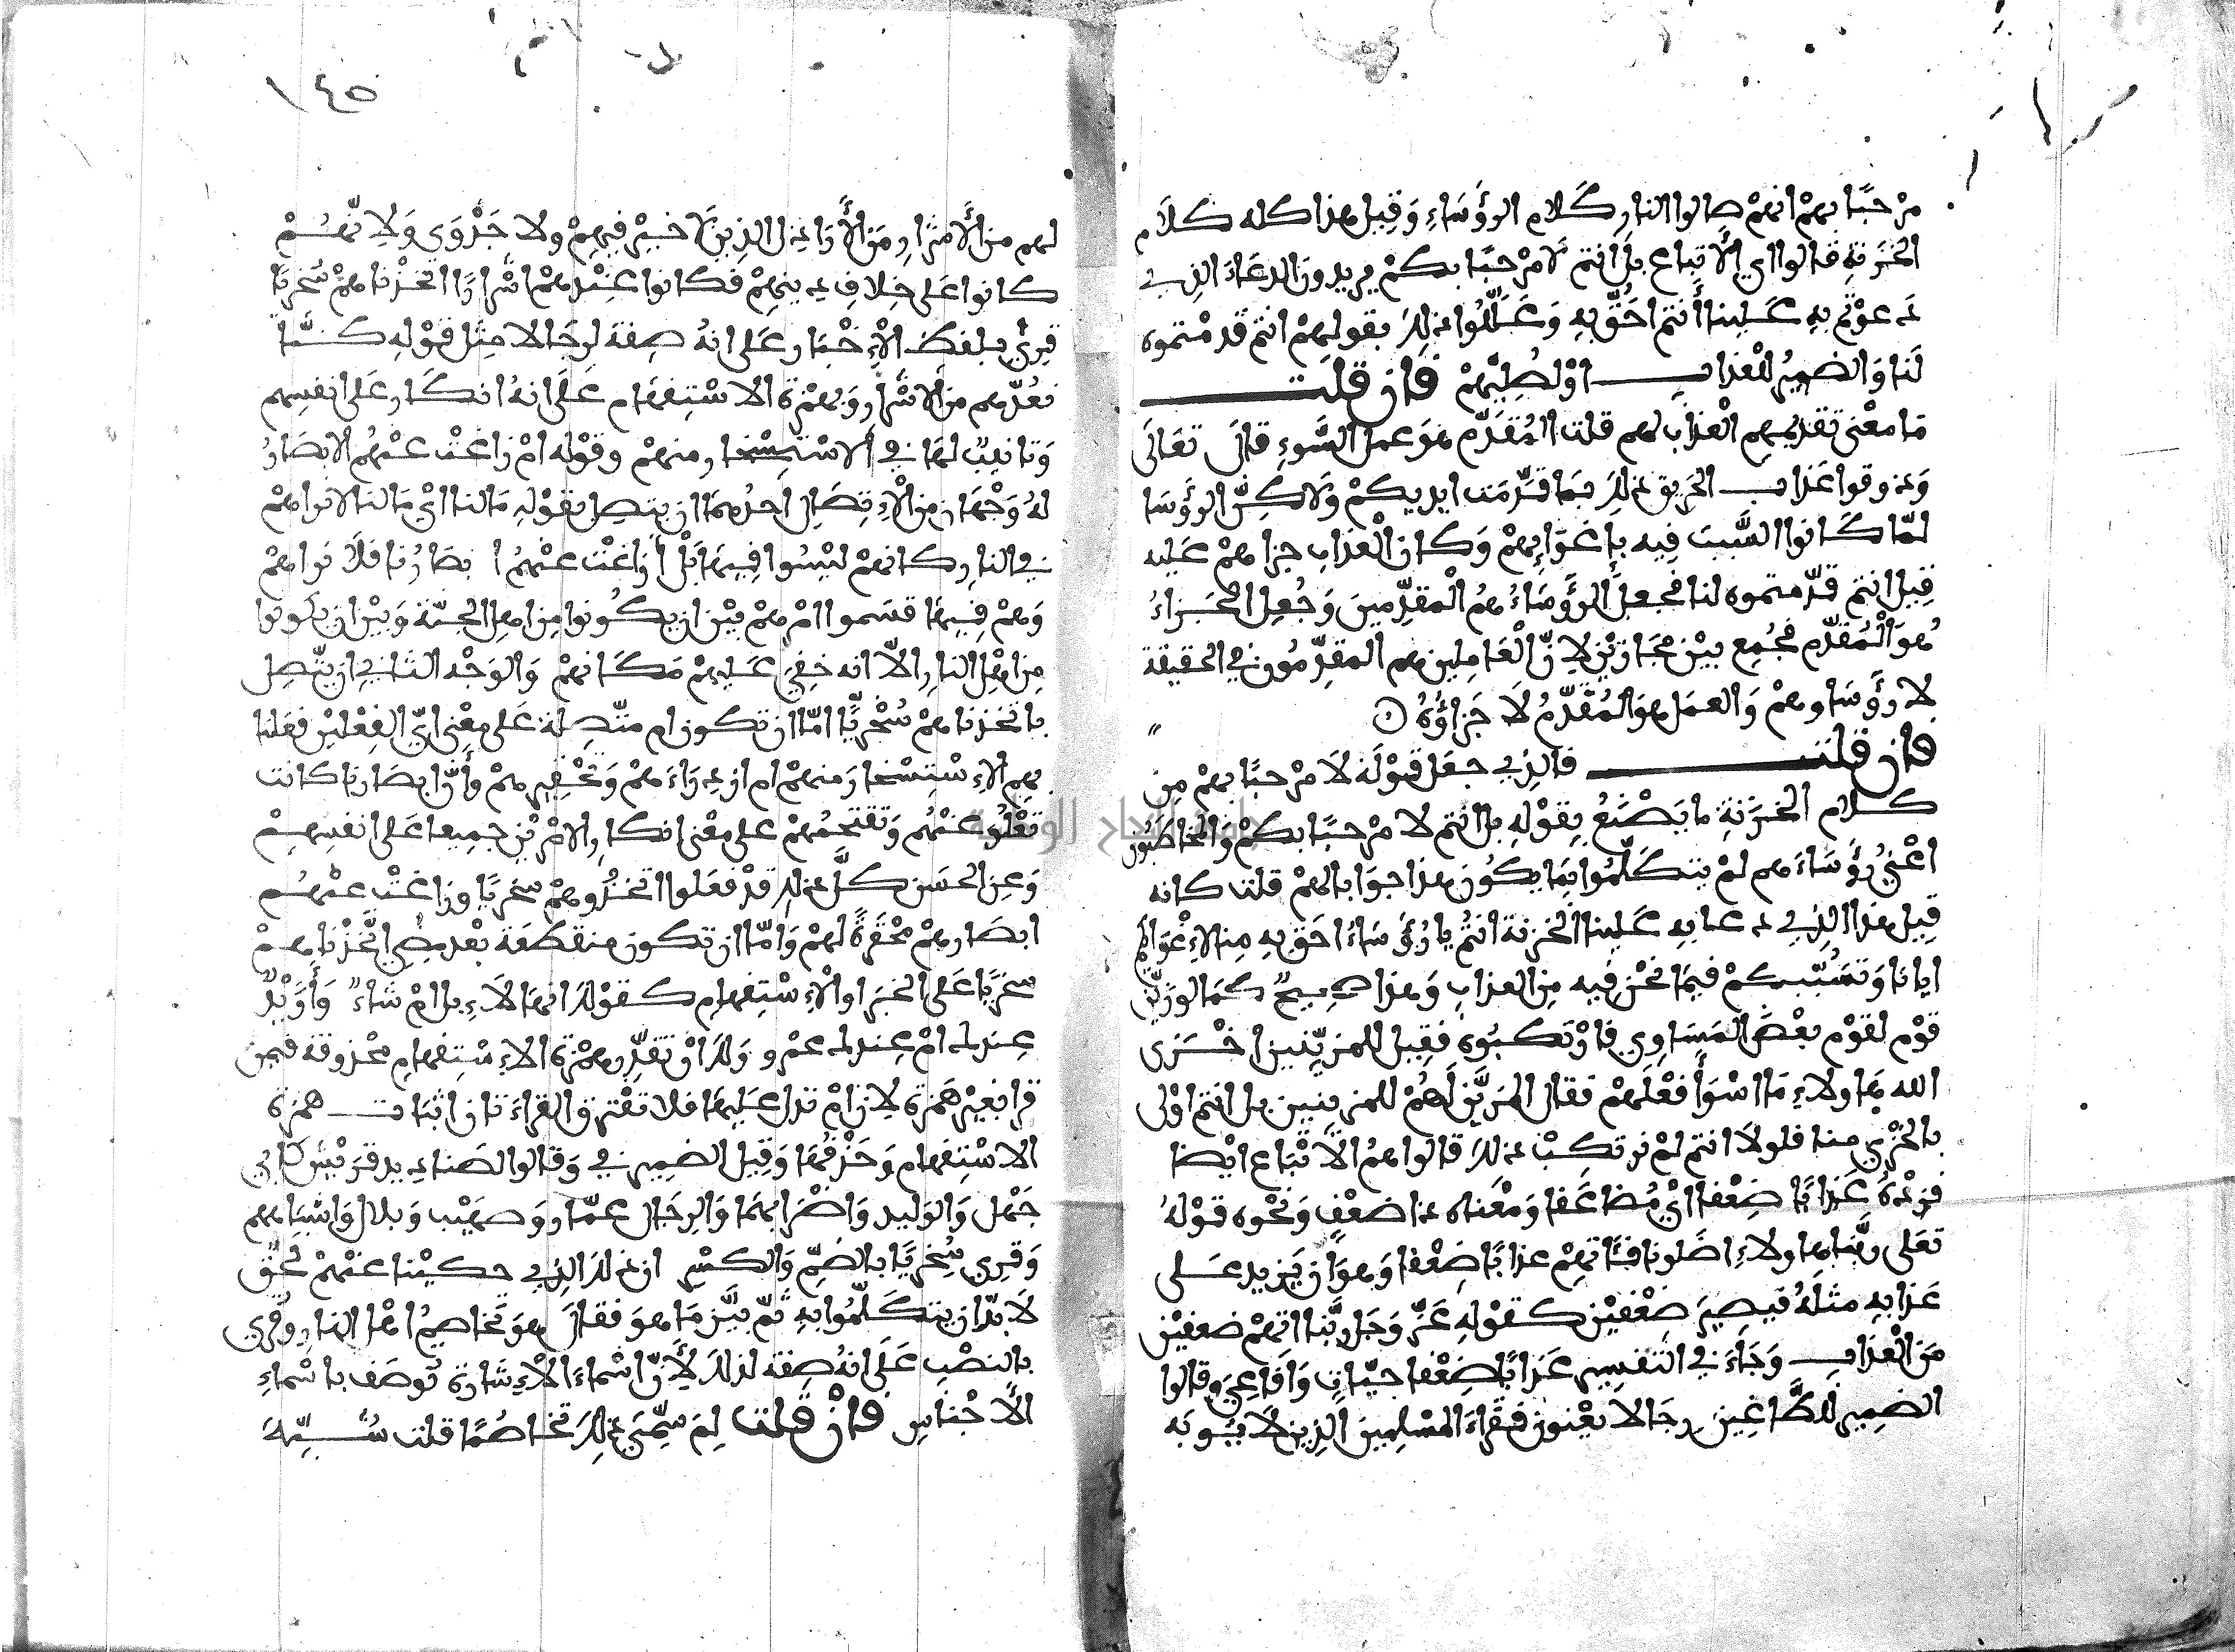 مرْحبًا بهمْ انهمْ صالوا النارِ كَلام الرؤَسَاءِ وَقِيل هذا كله كلَام
الخَزَنةِ قالوا اي الأتباع بل انتم لَا مرْحبًا بكمْ يريدون الدعَاءَ الذي
دَعوْتم بهِ عَلينا أنتم احَقُّ بهِ وَعَلّلُوا ذلكَ بقولهِمْ انتمْ قدمْتموه
لَنا وَالضميرُ للْعذاب اوْ لصُلِيِّهمْ فان قلت
مَا معْنى تقديمهم الْعذابَ لهم قلت المُقَدَّم هوَ عمل السُّوءِ قال تعَالَى
وَذوقوا عَذاب الحريق ذلكَ بمَا قدَّمَت ايديكمْ وَلاكنَّ الرؤَسَا
لمّا كَانوا السَّببَ فِيه بإغوَائِهمْ وَكان الْعذاب جزاهمْ عَليه
قِيل انتم قدّمتموه لنا فجعلَ الرؤَسَاءُ همُ الْمقدِّمينَ وَجُعِل الجَزاءُ
هُوَ الْمُقدَّم فجُمِع بيْنَ مجَازيْن لِأنَّ الْعَامِلين هم المقدِّمُون في الحقيقة
لا رؤَساوهمْ وَالعمَل هوَ المُقدَّمُ لَا جَزاؤُهُ
فان قلت فالذِي جعَل قوْلهُ لَا مرْحبًا بهمْ مِن
كلَام الخزَنةِ ما يَصْنعُ بِقوْلهِ بل انتم لا مرْحبًا بكمْ وَالمخاطبُون
اعْني رُؤَسَاءَهم لمْ يتكَلّمُوا بمَا يكُون هذا جوَابا لهمْ قلت كانه
قِيل هذا الذِي دعا بهِ عَلينا الخزنة انتمْ يا رُؤَسَاءُ احَق بهِ مِنا لإغْوَائكمْ
ايانا وَتسَبُّبِكمْ فيمَا نحْن فيه مِن العذابِ وَهذا صحِيحٌ كمَا لوْ زيّن
قوْم لقوْم بعْضَ المَسَاوِي فارْتكبُوه فقِيل للمزيّنين اخْزَى
الله هاولاءِ مَا اسْوَأَ فعْلَهمْ فقال المزيَّن لَهُمْ للمزينين بل انتم اوْلى
بالخِزْي منا فلولَا انتم لمْ نرتكِبْ ذلكَ قالوا همُ الأتْبَاع ايْضا
فزدْهُ عَذابًا ضِعْفا ايْ مُضاعَفا وَمعْناه ذا ضعْفٍ وَنحْوه قوْلهُ
تعَلى ربَّنا هاولاءِ اضَلونا فئَاتهِمْ عذابًا ضِعْفا وَهوَ ان يَزيد عَلى
عَذابهِ مثلَهُ فيصِيرَ ضعْفيْن كقوْلهِ عَزَّ وَجَل ربَّنا اتهمْ ضعفيْن
منَ الْعذابِ وَجَاءَ في التفسِير عَذابًا ضِعْفا حيّاتٍ وَافَاعِيَ وقالوا
الضمِير للطَّاغِينَ رجَالا يعْنون فقرَاءَ المسْلِمين الذِين لَا يُوبَه
لهم من الأشرارِ منَ الأرَاذِل الذِين لَا خَيْرَ فيهِمْ ولا جَدْوَى وَلِانّهُمْ
كانوا عَلى خِلافِ دِينهِمْ فكانوا عِنْدهمْ اشْرارًا اتخذْناهمْ سُخريًا
قرِئ بلفظ الْإخْبَار عَلى انهُ صِفة لرجَالا مِثْل قوْلهِ كنَّا
نعُدّهم من الاشْرارِ وَبهمْزة الاسْتِفهَام عَلَى انهُ انكَار عَلى انفسِهم
وَتانيبٌ لهَا في الاسْتِسْخار منهمْ وقوْله امْ زاغتْ عنْهُم الابصَارُ
لهُ وَجْهَان مِن الْإتِصَال احدُهمَا ان يتصِل بقوْلهِ مَا لنا ايْ مَا لنا لا نراهمْ
في النارِ كانهمْ ليْسُوا فِيهَا بَلْ أزاغتْ عنْهُمُ ابصَارُنا فلَا نراهمْ
وَهمْ فِيهَا قسَموا امْرهمْ بيْن ان يكُونوا مِن اهل الجنّة وَبيْن ان يكونوا
مِن اهْل النارِ إلّا انه خفِيَ عَليهمْ مَكَانهمْ وَالوَجْه الثاني ان يتّصِل
باتخذناهمْ سُخْريًّا امّا ان تكون ام متّصِلة عَلى معْنى ايّ الفِعْليْن فعَلنا
بهم الإسْتِسْخار منهمْ ام ازدِرَاءَهمْ وَتحْقيرهمْ وأنَّ ابصَارنا كانت
تعْلُو عنْهُم وَتقتحمُهمْ على معْنى انكارِ الامْريْن جميعا عَلى انفسِهمْ
وَعنِ الحسَن كلَّ ذلكَ قدْ فعَلوا اتخذُوهمْ سخريًا وزاغتْ عنْهُم
ابصَارهمْ محْقرَةً لهمْ وَامّا ان تكون منقطعَة بعْد مضِي اتّخذْناهمْ
سخريًا عَلى الخبَر او الْإسْتِفهام كقوْلكَ انهَا لَإبل امْ شَاءٌ وَأَزيْدٌ
عِندكَ امْ عِندكَ عمْرو وَلكَ انْ تقدِّر همْزة الاسْتِفهام محْذوفة فيمن
قرا بغيْر هَمزة لِانَّ امْ تدل عَليهَا فلا تفْترق القرَاءَتان اثبَات همزة
الاسْتِفهام وَحَذْفُهَا وَقِيل الضمِير في وَقالوا لصَنادِيد قرَيْش كَابي
جَهْل وَالوَليد وَاضْرَابهمَا وَالرجَال عمّار وَصهَيْب وَبلال وَاشبَاههم
وَقرِئ سُِخريًّا بالضمِّ وَالكسْرِ ان ذلكَ الذِي حكيْنا عنْهمْ لحقّ
لَا بدّ ان يتكَلّمُوا بهِ ثمّ بيَّن مَا هوَ فقال هوَ تخاصمُ اهْل النارِ وقرِي
بالنصْبِ عَلَى انهُ صِفة لذلكَ لِأنَّ اسْمَاءَ الْإشَارة تُوصَف باسْمَاءِ
الأجْناسِ فانْ قلت لِمَ سمِّيَ ذلِكَ تخَاصُمًا قلت شُبِّهَ
١٤٥